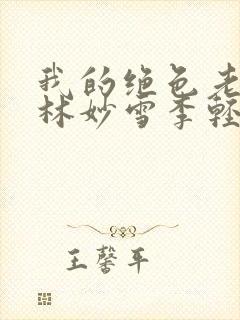 我的绝色老
林妙雪季轻
王馨平